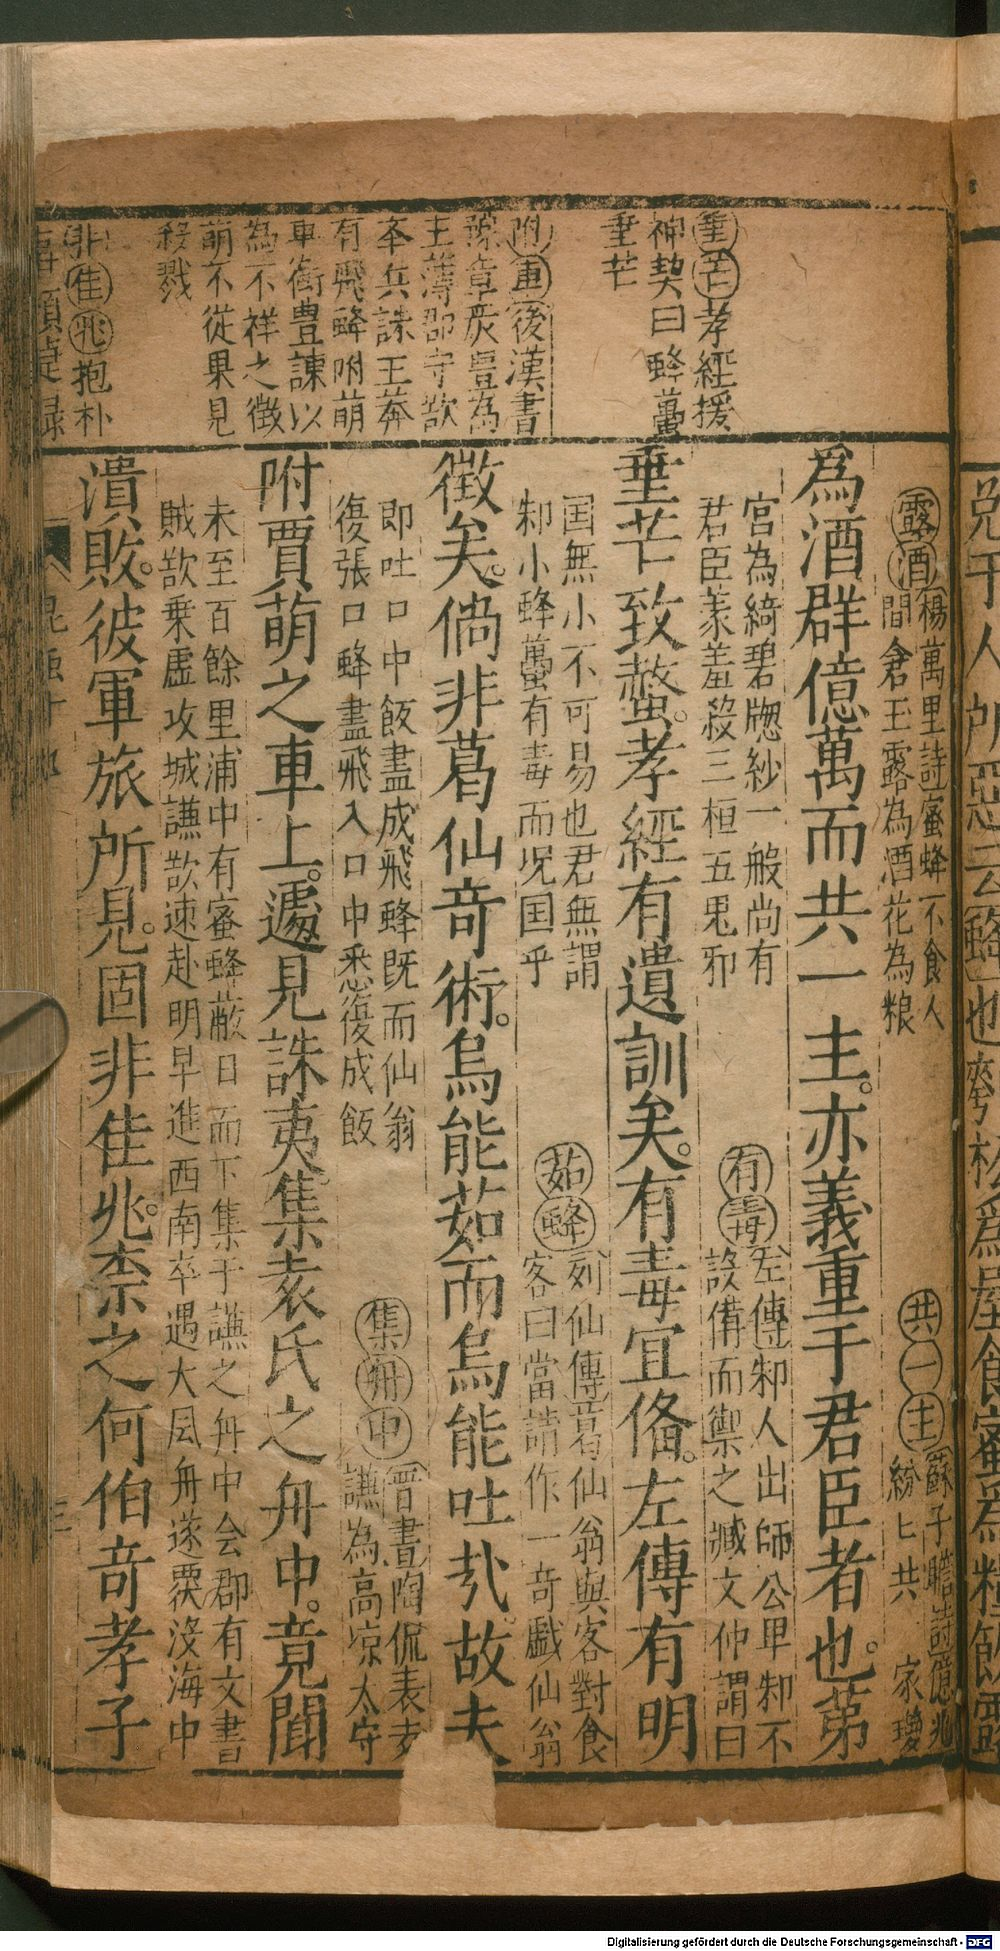 垂芒孝經援
神契曰蜂蠆
垂芒
附車後漢書
豫章炭豊為
王薄郡守欲
夲兵誅王莽
有飛蜂附萌
車衡豊諫以
為不祥之徵
萌不從果見
殺戮
非佳兆抱朴
為酒群億萬而共一主。亦義重于君臣者也。苐
露酒楊萬里詩蜜蜂不食人
間倉玉露為酒花為粮
共一主蘇子瞻詩億兆
紛匕共一家瓊
宮為綺碧牕紗一般尚有
君臣義羞殺三桓五鬼邪
有毒左傳邾人出師公卑邾不
設備而禦之臧文仲謂曰
垂芒致螫。孝經有遺訓矣。有毒宜俻。左傳有明
国無小不可易也君無謂
邾小蜂蠆有毒而况国乎
茹蜂列仙傳葛仙翁與客對食
客曰當請作一奇戲仙翁
徵矣。倘非葛仙奇術。烏能茹而烏能吐㢤。故夫
即吐口中飯盡成飛蜂既而仙翁
復張口蜂盡飛入口中悉復成飯
集舟中晋書陶侃表
謙為高凉太守
附賈萌之車上。遽見誅夷。集袁氏之舟中。竟聞
未至百餘里浦中有蜜蜂蔽日而下集于謙之舟中会郡有文書
賊欲乗虛攻城謙欲速赴明早進西南卒遇大风舟遂覆没海中
潰敗。彼軍旅所見。固非佳兆。柰之何伯奇孝子
Digitalisierung gefördert durch die Deutsche Forschungsgemeinschaft - DFG